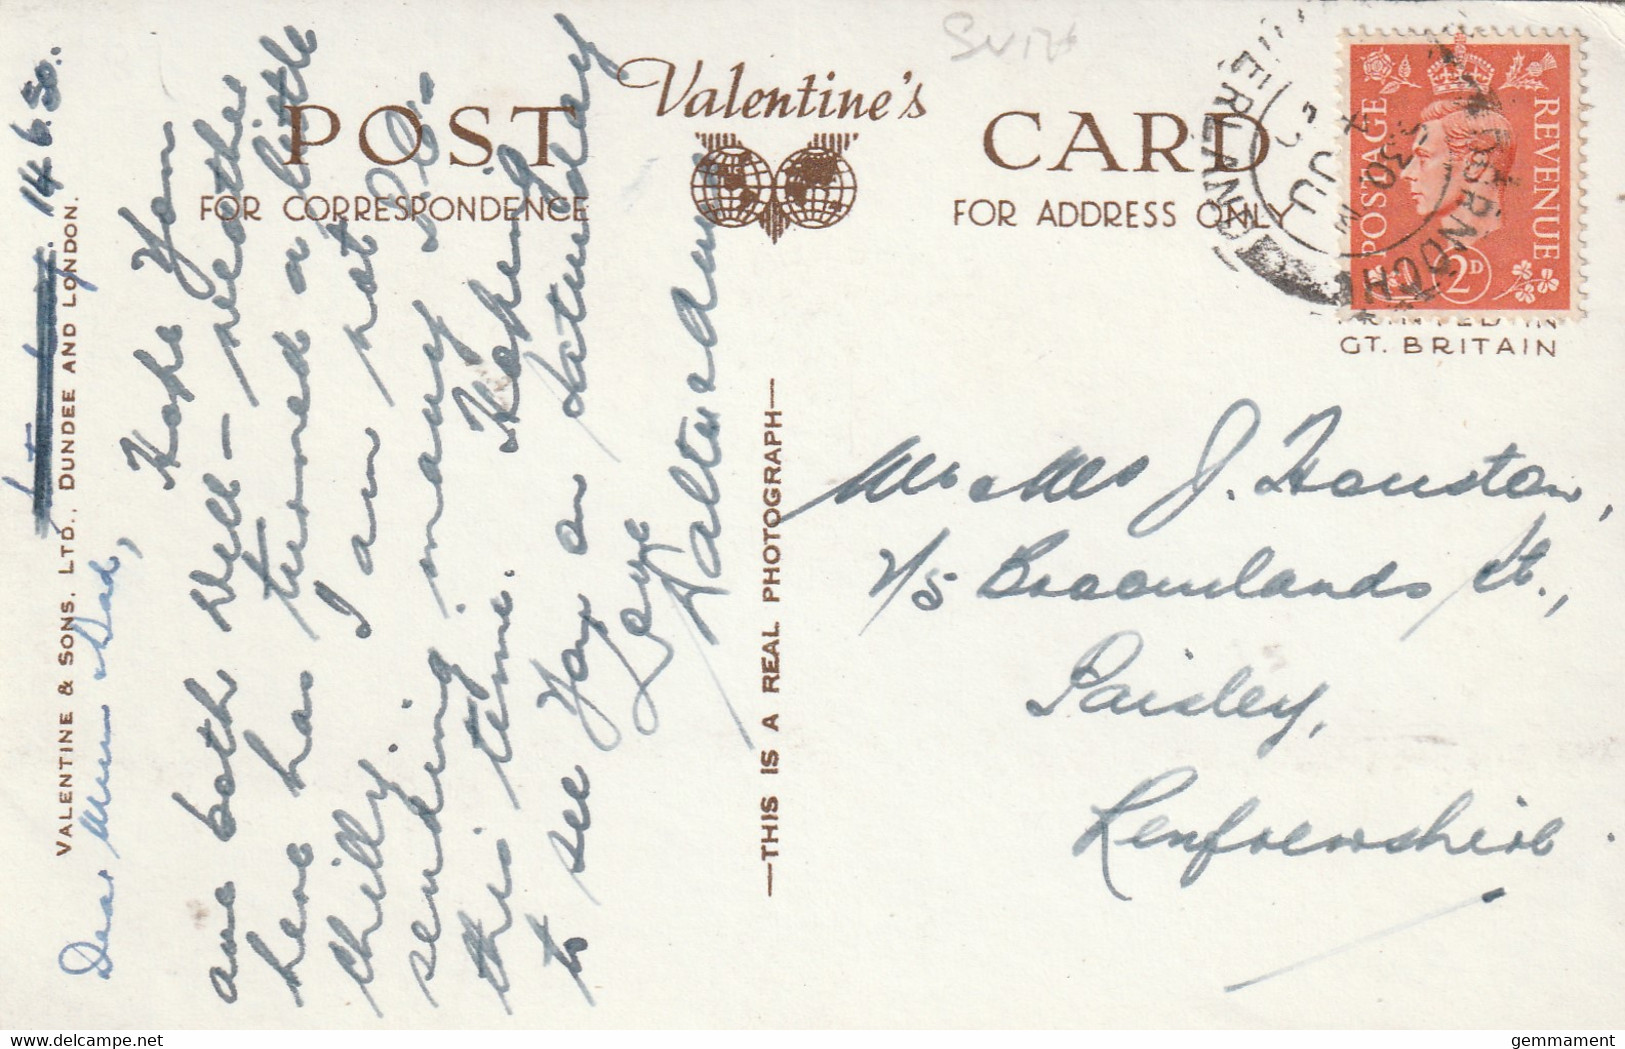 14.6.50.
VALENTINE & SONS, LTD., DUNDEE AND LONDON.
Dear Mum & Dad,
Hope You
are both well - weather
here has turned a little
chilly. I am not
sending many P.C.-
this time. Hoping
to see You on Saturday
Love
Walter & Anna
POST CARD
Valentine's
FOR CORRESPONDENCE
FOR ADDRESS ONLY
—THIS IS A REAL PHOTOGRAPH—
POSTAGE REVENUE
2D
PRINTED IN
GT. BRITAIN
Mr & Mrs J. Houston,
2/5 Broomlands St.,
Paisley,
Renfrewshire
gemmament